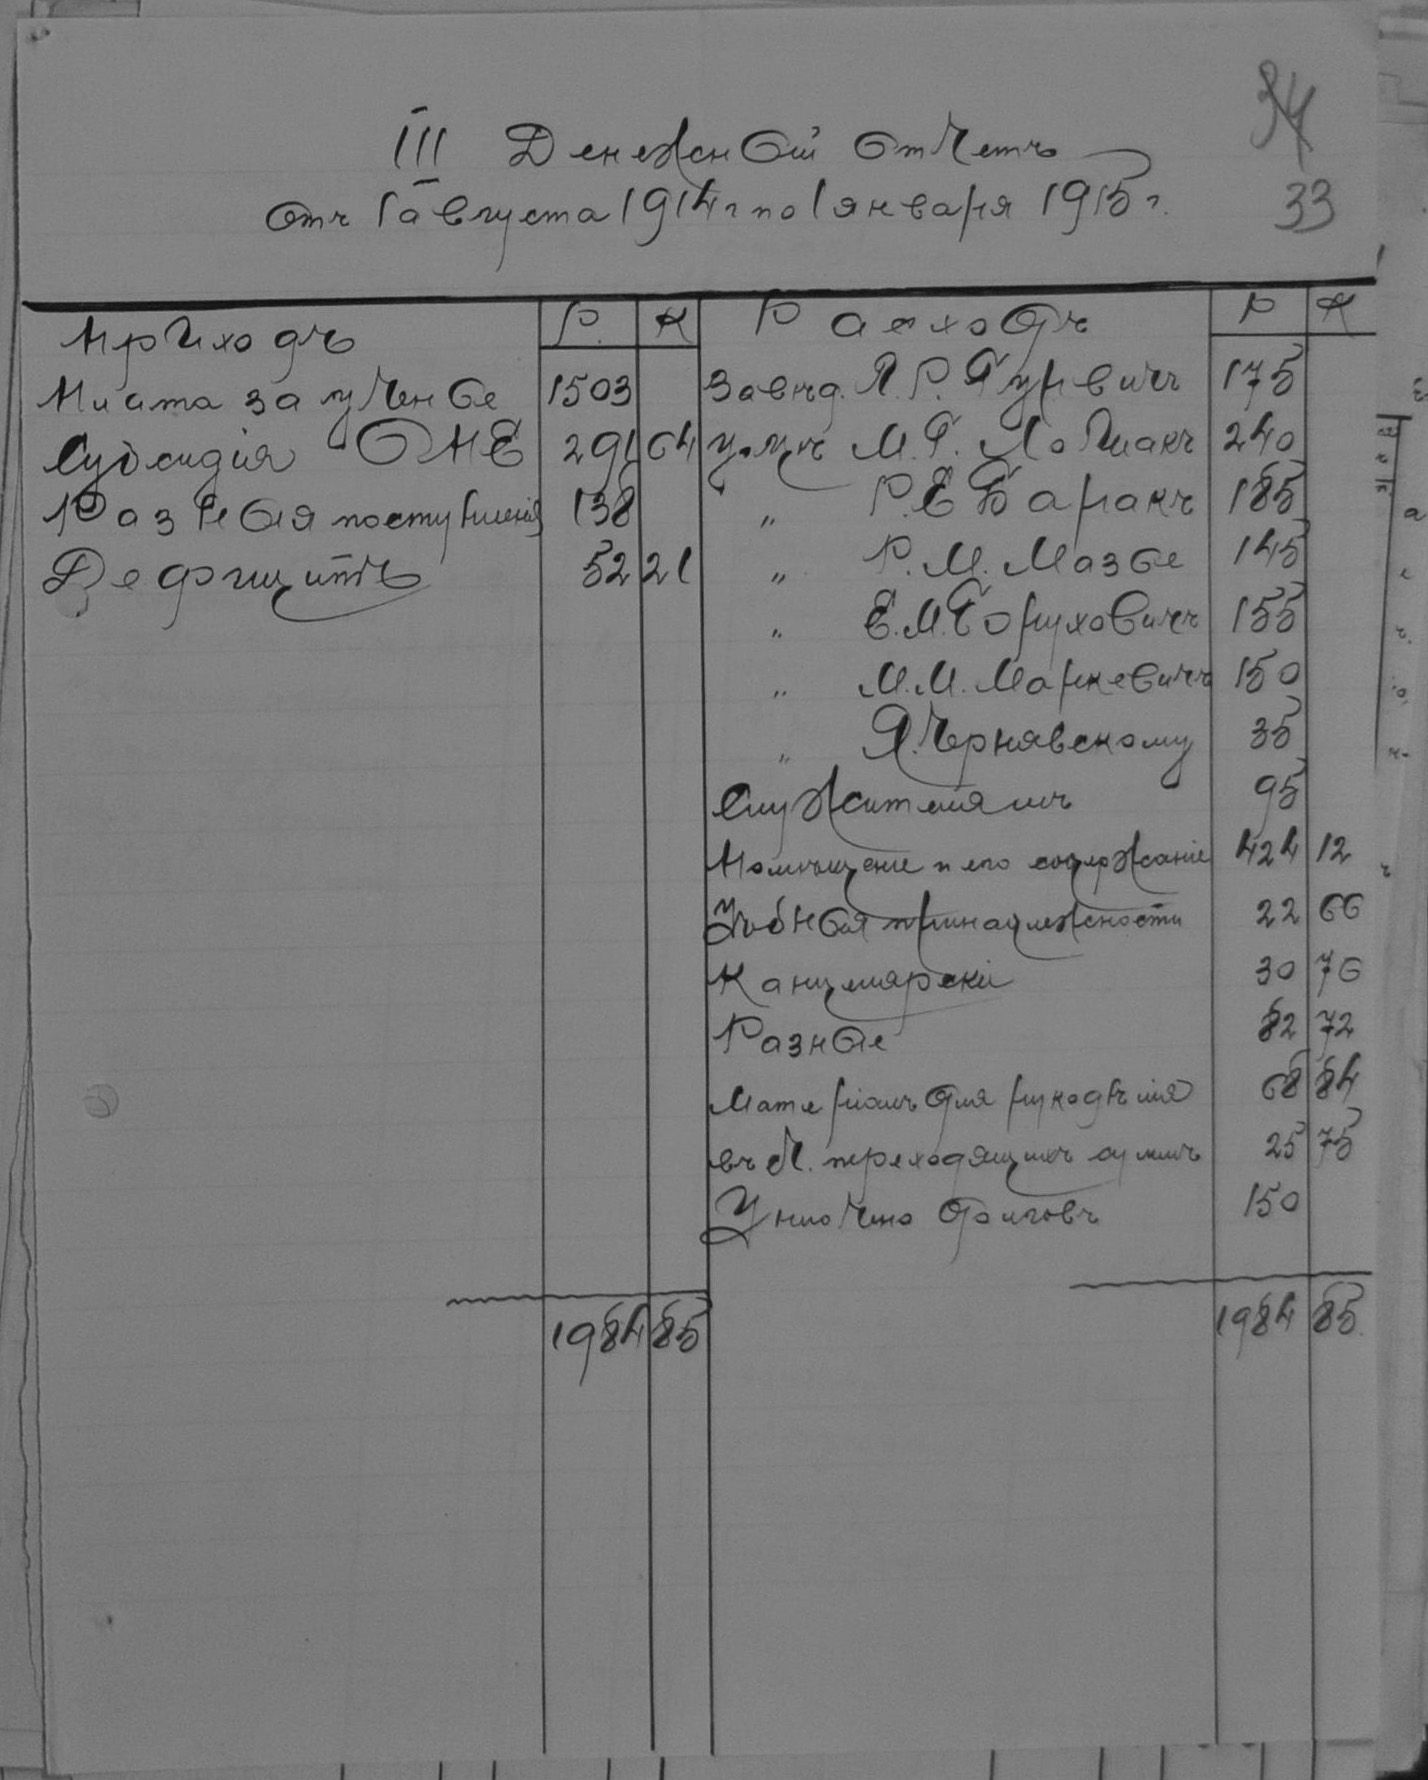 34
33
III Денежный отчетъ
отъ 1 августа 1914 г по 1 января 1915 г.
Приходъ Р. К
Плата за ученье 1503
Субсидія ОПЕ 291 64
Разныя поступленія 138
Дефицитъ 52 21
1984 85
Расходъ Р К
Завѣд. Я. Р. Гурвичъ 175
М. Г. 240
„ Р. Е Баракъ 185
„ Р. М. Мазье 145
„ Е. М. Боруховичъ 155
„ М. М. Маркевичъ 150
„ Я. Чернявскому 35
Служителямъ 95
Помѣщеніе и его содержаніе 424 12
Учебныя принадлежности 22 66
Канцелярскіе 30 76
Разные 82 72
Матеріалъ для рукодѣлія 68 84
въ переходящихъ суммъ 25 75
Уплочено долговъ 150
1984 85